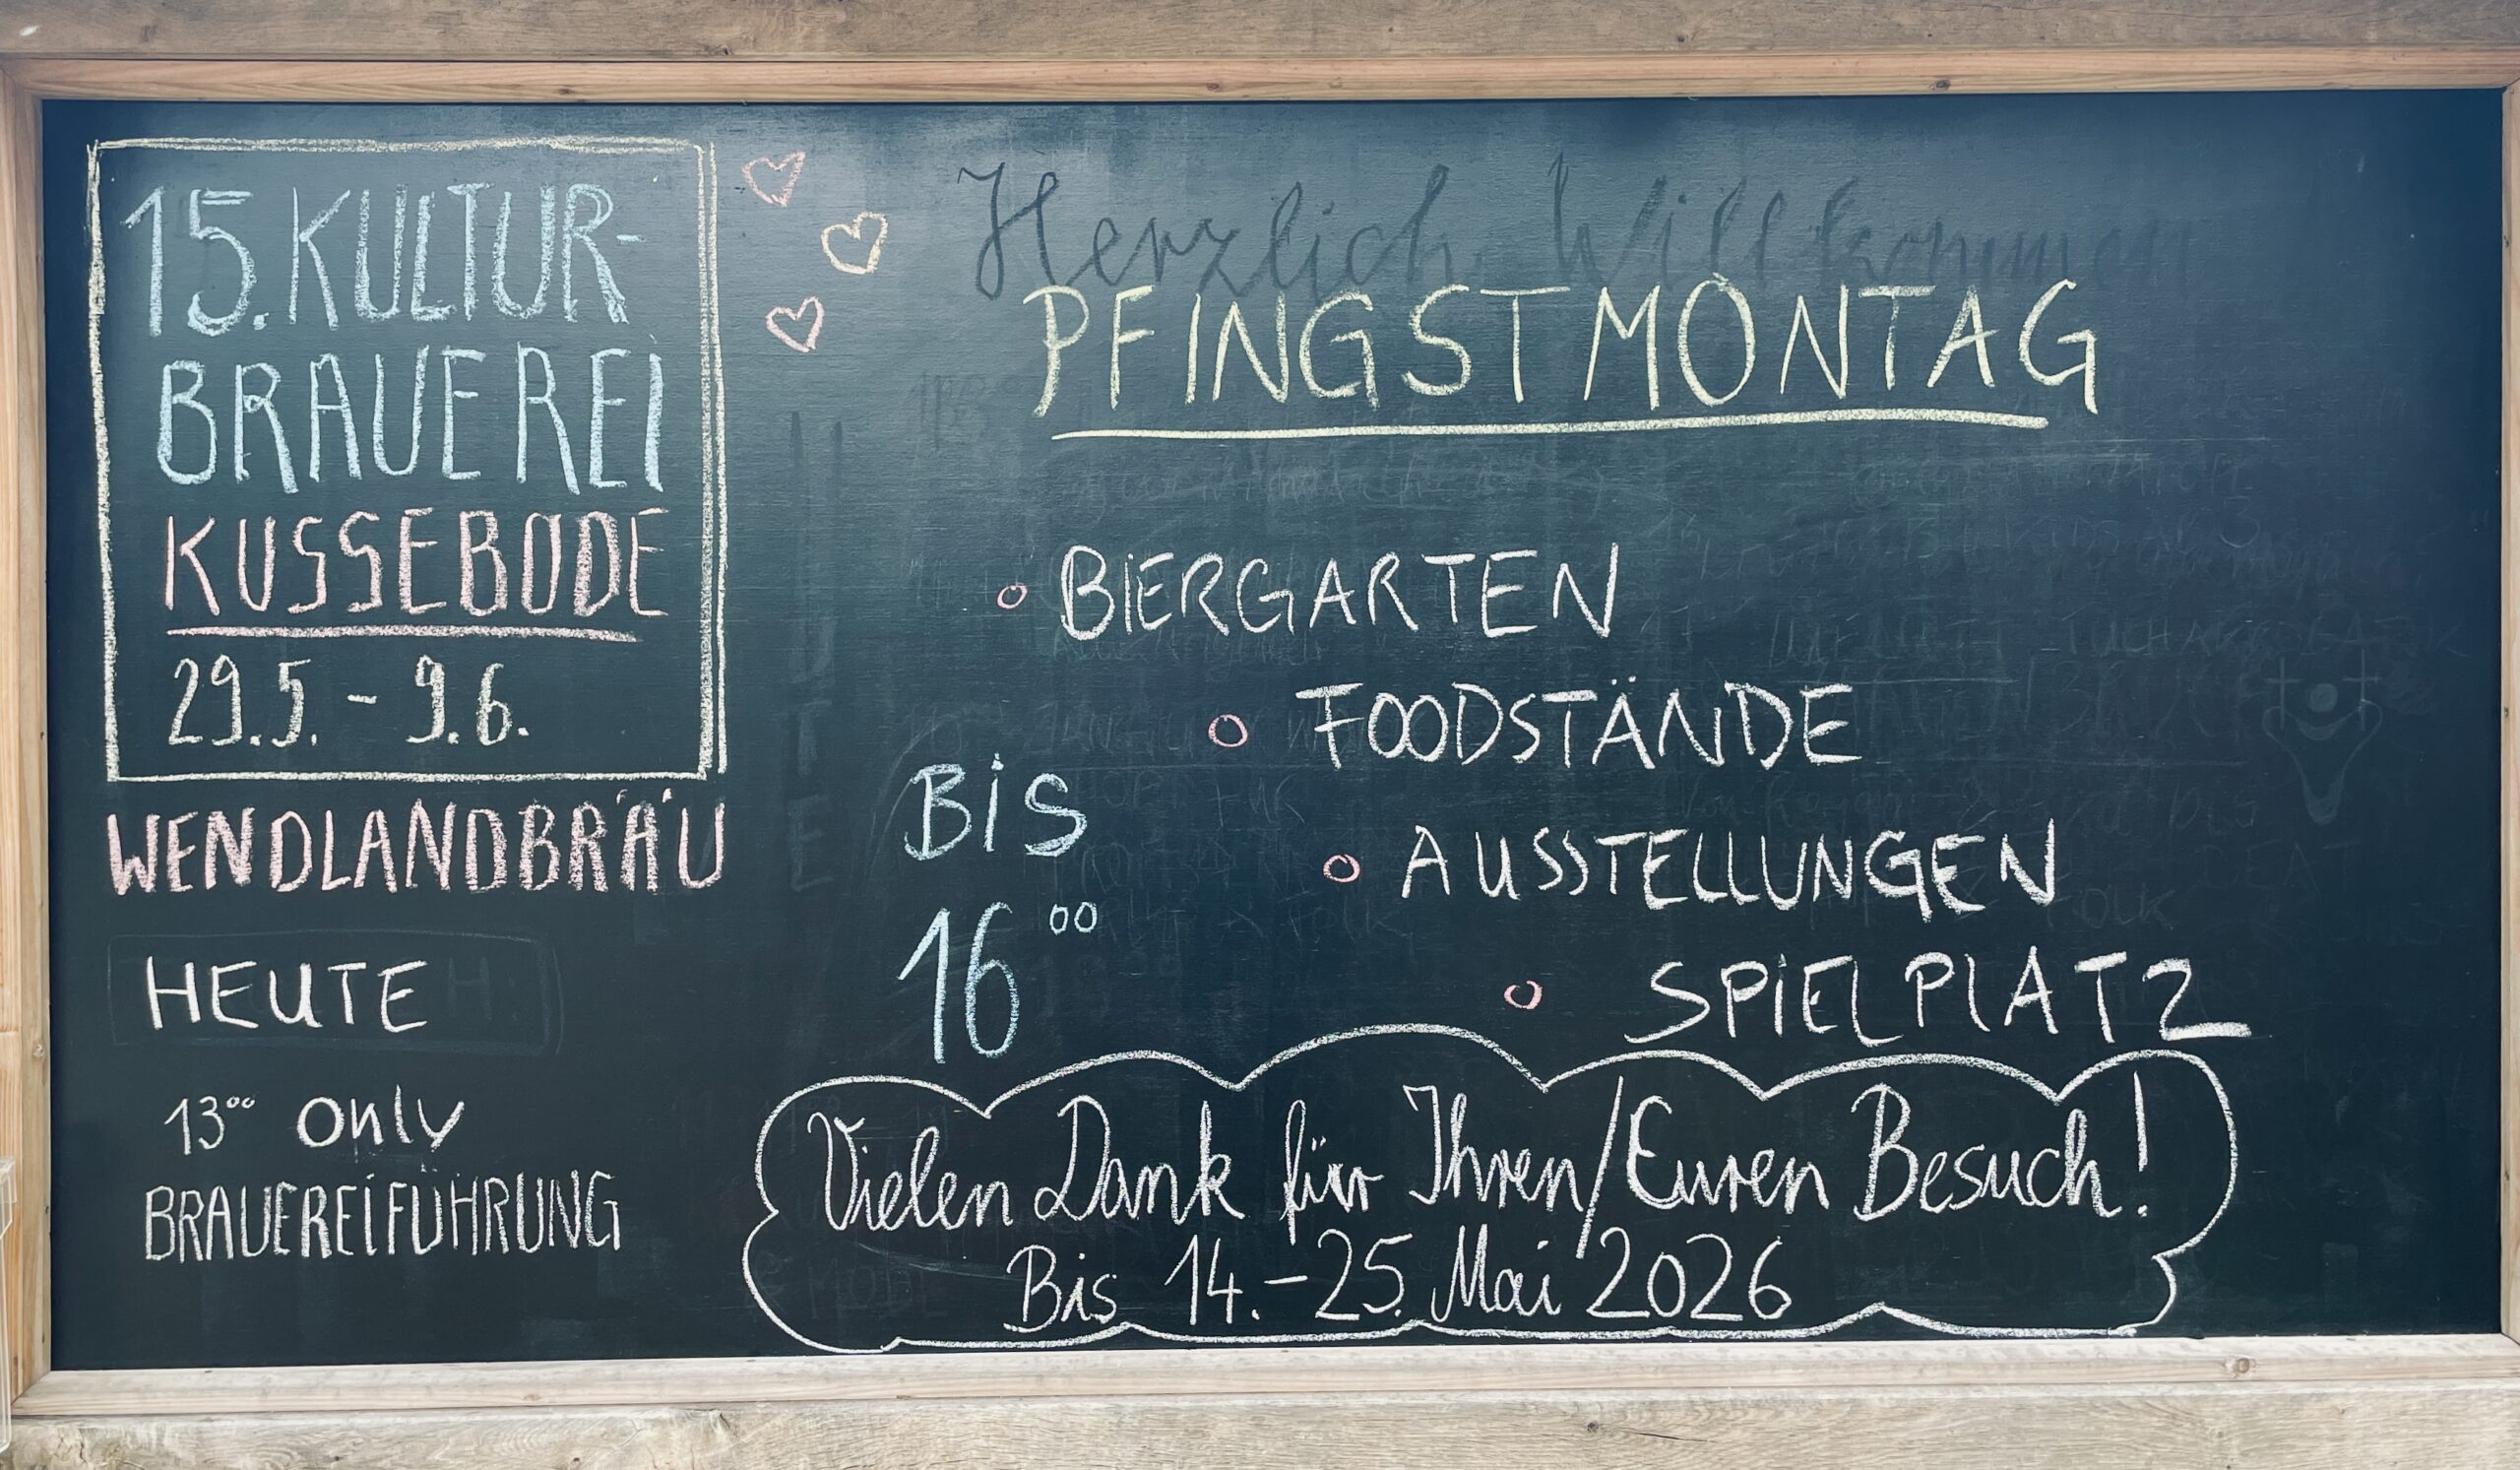 15. KULTUR-
BRAUEREI
KUSSEBODE
29.5. - 9.6.
WENDLANDBRÄU
HEUTE
13⁰⁰ Only
BRAUEREIFÜHRUNG
Herzlich Willkommen
PFINGSTMONTAG
BIERGARTEN
FOODSTÄNDE
AUSSTELLUNGEN
SPIELPLATZ
BIS
16⁰⁰
Vielen Dank für Ihren/Euren Besuch!
Bis 14.-25. Mai 2026